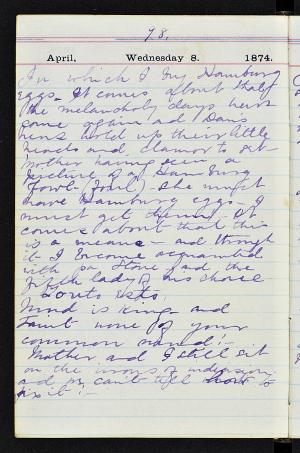 98.
April, Wednesday 8. 1874.
In which I buy Hamburg
eggs. It comes about that
the melancholy days have
come again and Dan's
hens hold up their little
heads and clamor to set.
Mother having seen a
picture of a Hamburg
Fowl - (fowl) - she must
have Hamburg eggs - I
must get them. It
comes about that this
is a means - and through
it I become acquainted
with Stone and the
lady of his choice

Mind is King - and
none of your
common mind! -
Mother and I still sit
on the
and can't tell how to
fix it! -